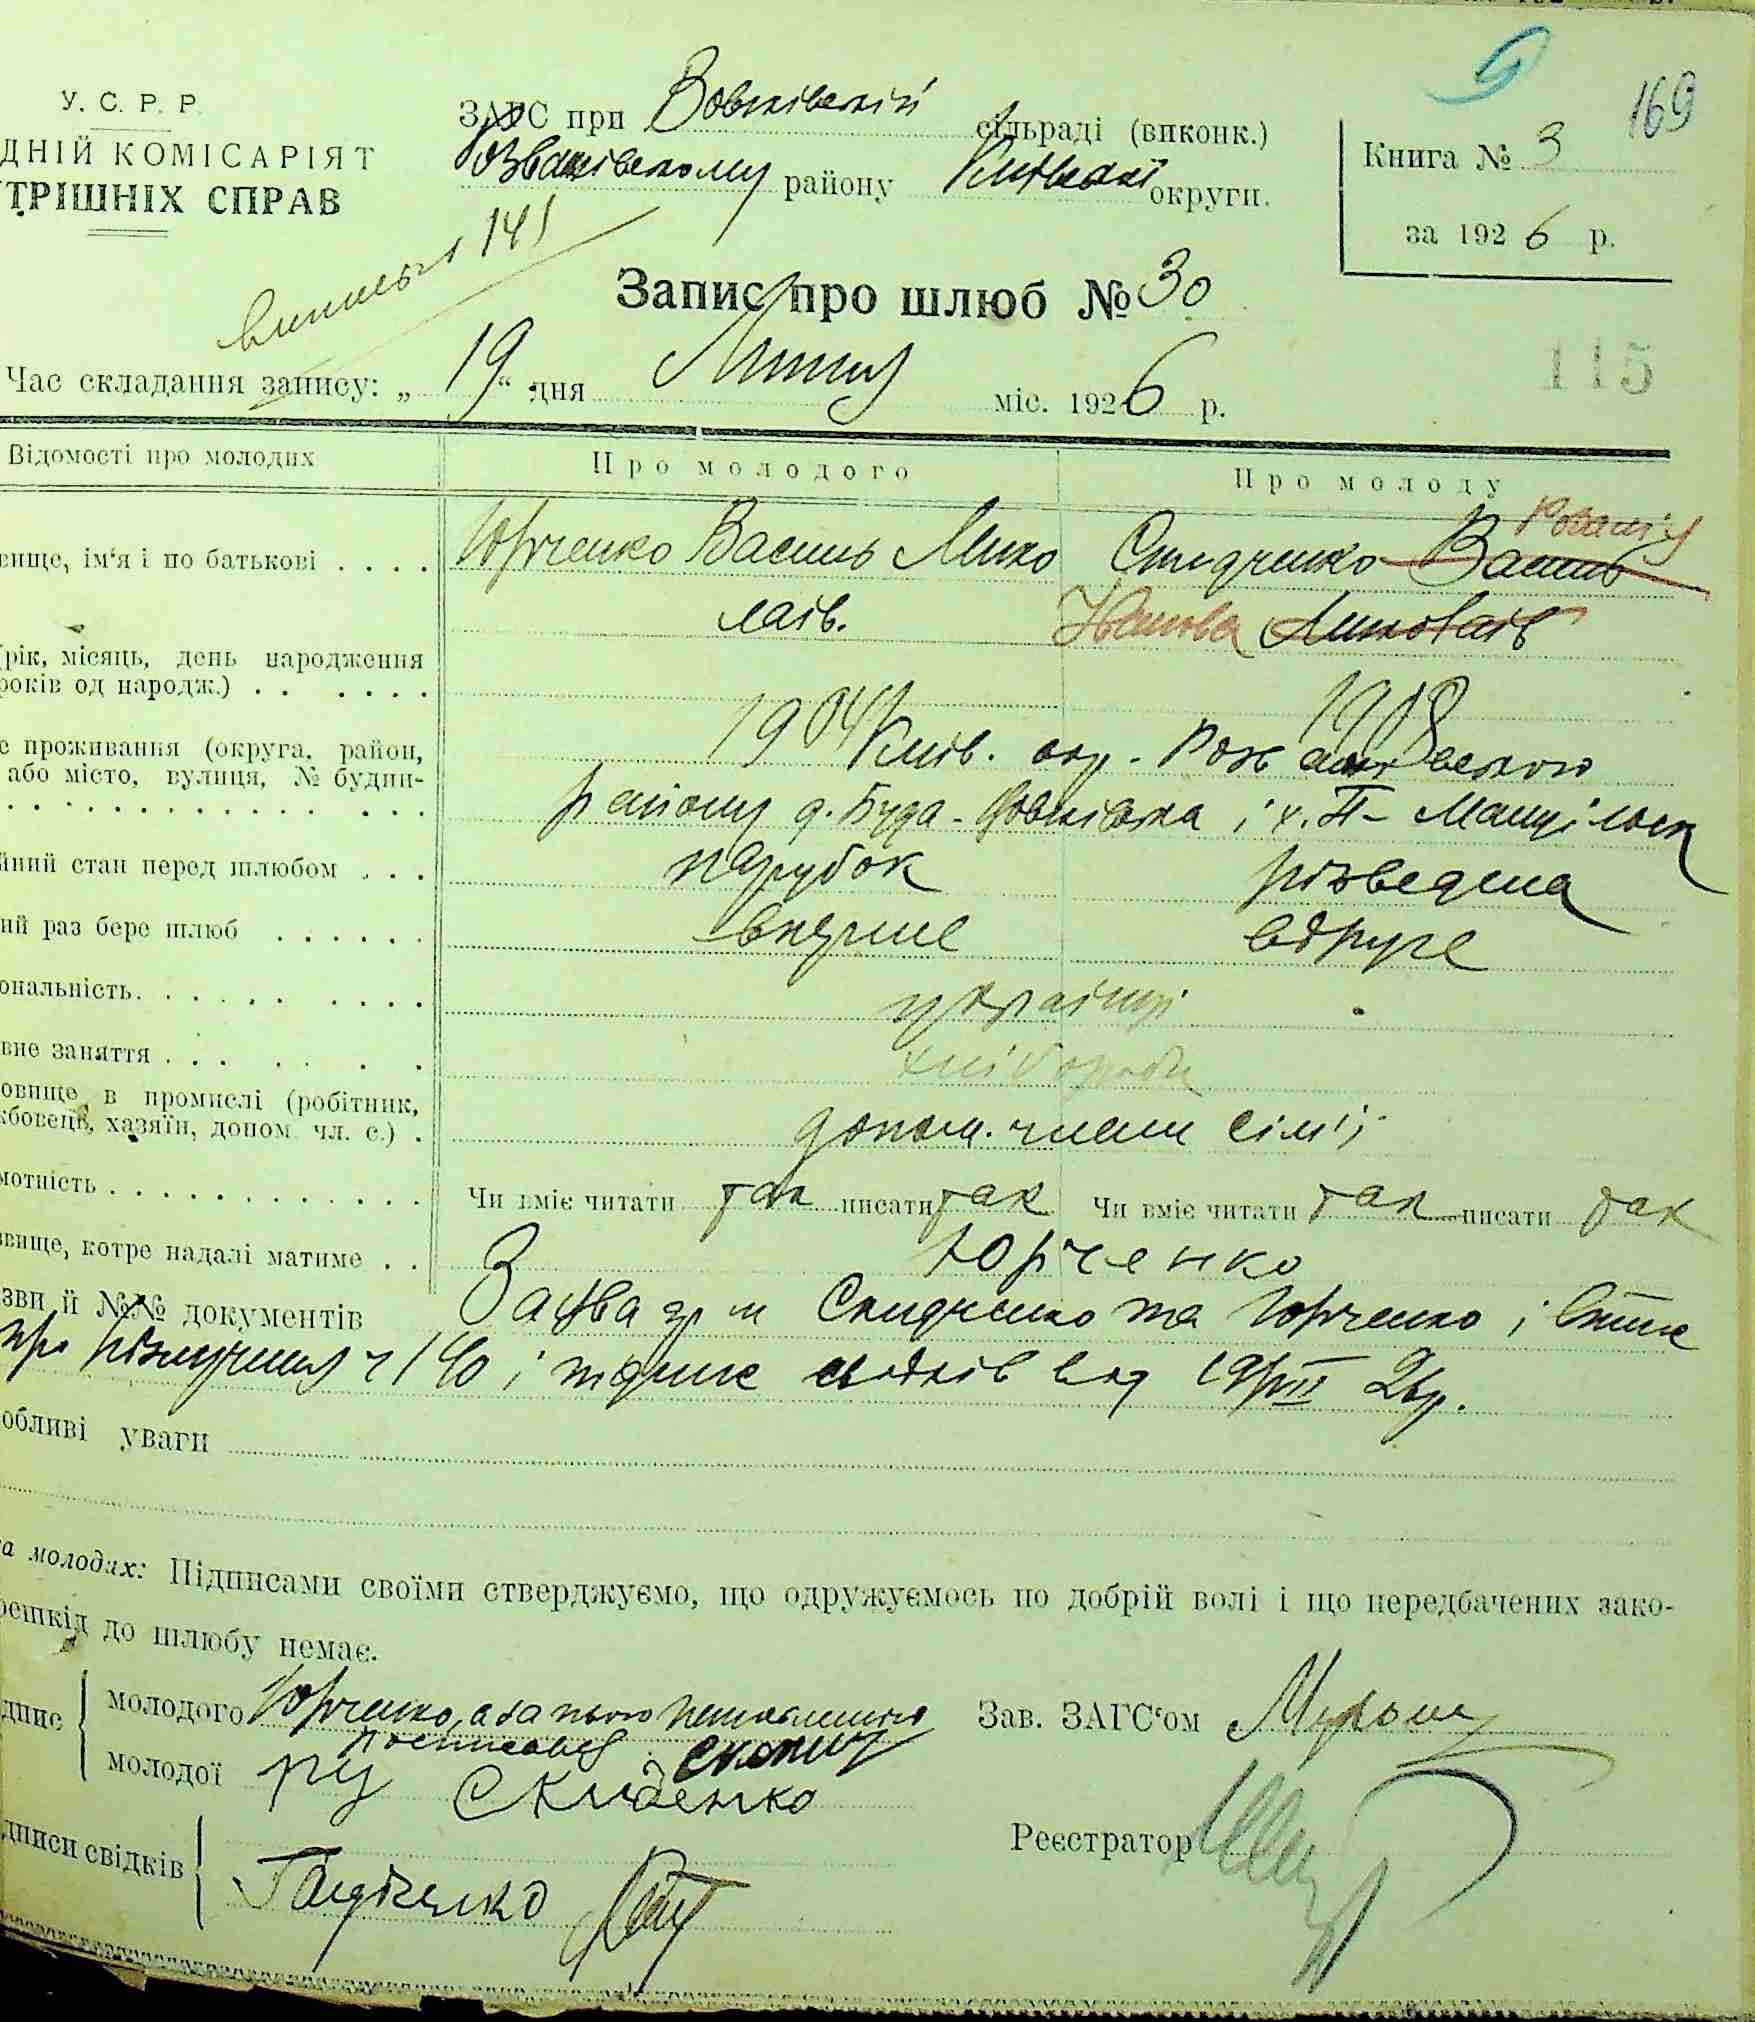 169
У. С. Р. Р.
ДНІЙ КОМІСАРІЯТ
ТРІШНІХ СПРАВ
ЗАГС при Вовківській сільраді (виконк.)
Розважівському району Київської округи.
Книга № 3
за 1926 р.
виписка 141
Запис про шлюб № 30
115
Час складання запису: „19“ дня Липня міс. 1926 р.
Відомості про молодих Про молодого Про молоду
вище, ім‘я і по батькові . . . . Юрченко Василь Мико Скидченко Василь
лаїв. Іванова Миколаїв
(рік, місяць, день народження
років од народж.) . . . . . . 1904 1908
е проживання (округа, район, Київ. окр. Розважівського
або місто, вулиця, № будин- району д. Буда-Вовківська і х. П-Мацільск
йний стан перед шлюбом . . . парубок розведена
ий раз бере шлюб . . . . . . вперше вдруге
ональність. . . . . . . . . . українці
вне заняття . . . . . . хлібороби
овище в промислі (робітник,
жбовець, хазяїн, допом. чл. с.) . допом. члени сім'ї
мотність . . . . . . . . . . . . . Чи вміє читати так писати так Чи вміє читати так писати так
звище, котре надалі матиме . . Юрченко
зви й №№ документів Заява гр-н Скидченко та Юрченко і
про розлучення ч 140 і свідків від 19/VII 26р.
обливі уваги
а молодих: Підписами своїми стверджуємо, що одружуємось по добрій волі і що передбачених зако-
решкід до шлюбу немає.
дпис молодого Юрченко, а за нього неписьменного
росписався
молодої Скиденко
Зав. ЗАГС‘ом
дписи свідків
Реєстратор